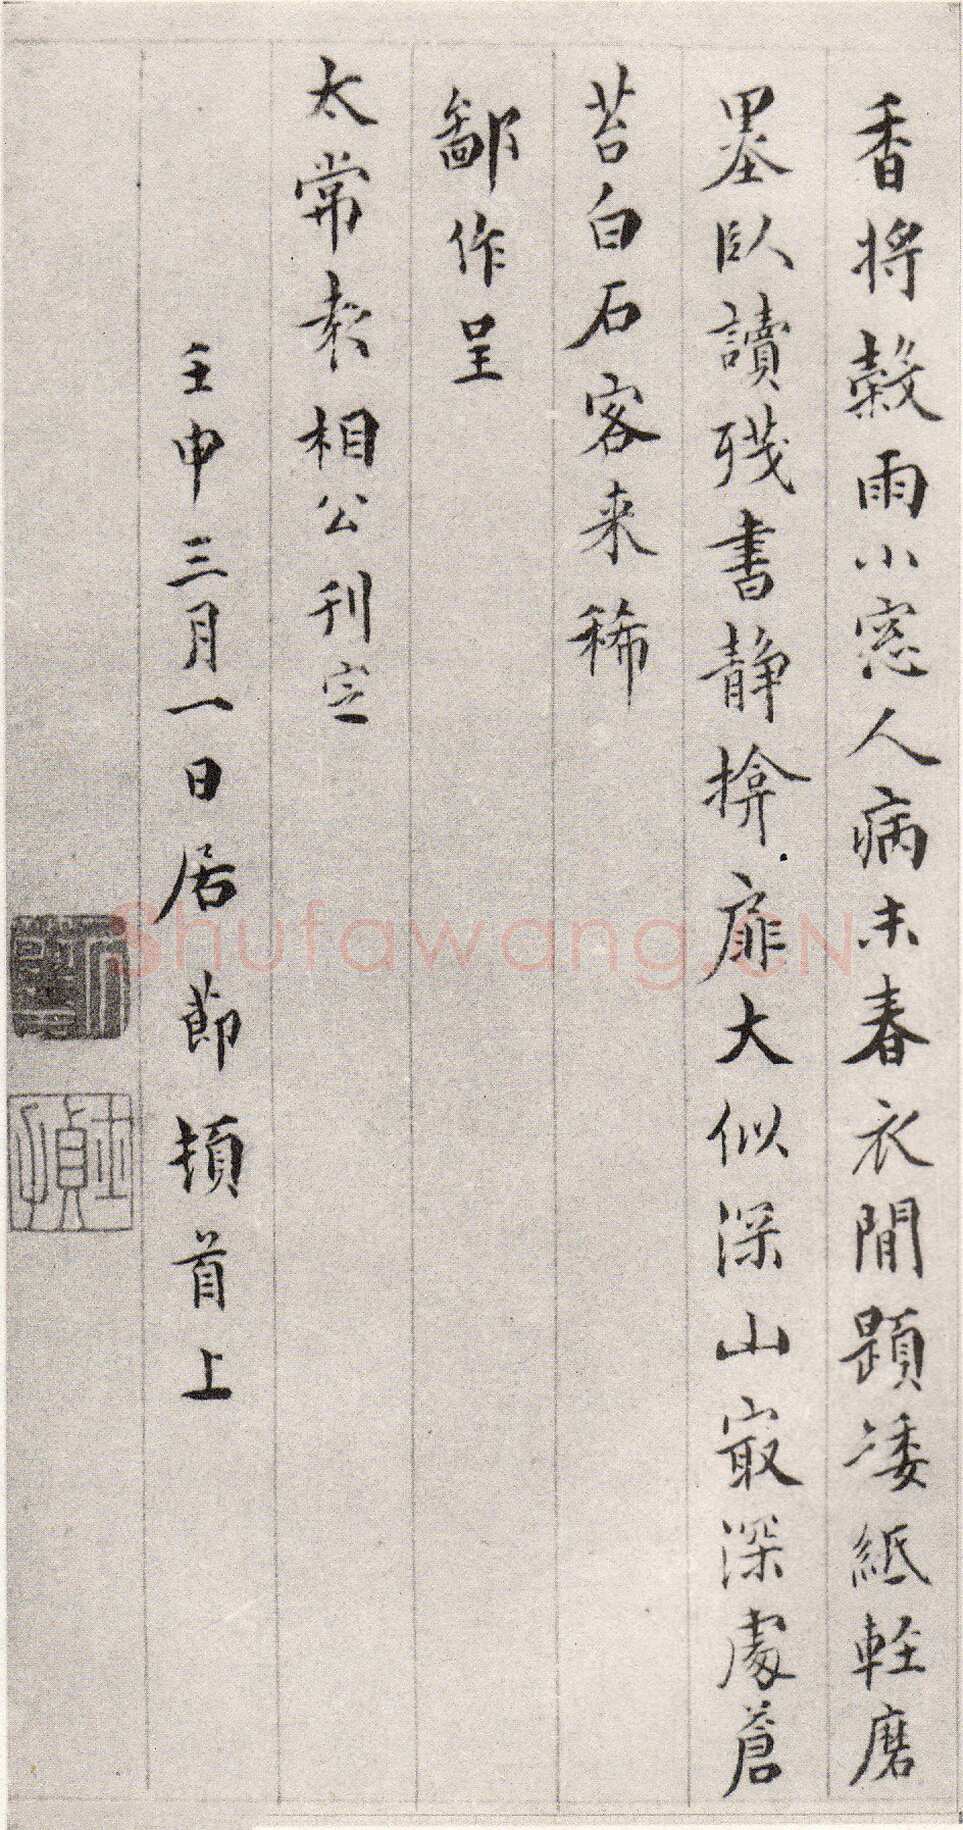 香將穀雨小窓人病未春衣閒題矮紙輕磨
墨臥讀殘書靜揜扉大似深山寂深處蒼
苔白石客来稀
鄙作呈
太常袁相公刊定
壬申三月一日居節頓首上
Shufawang.CN